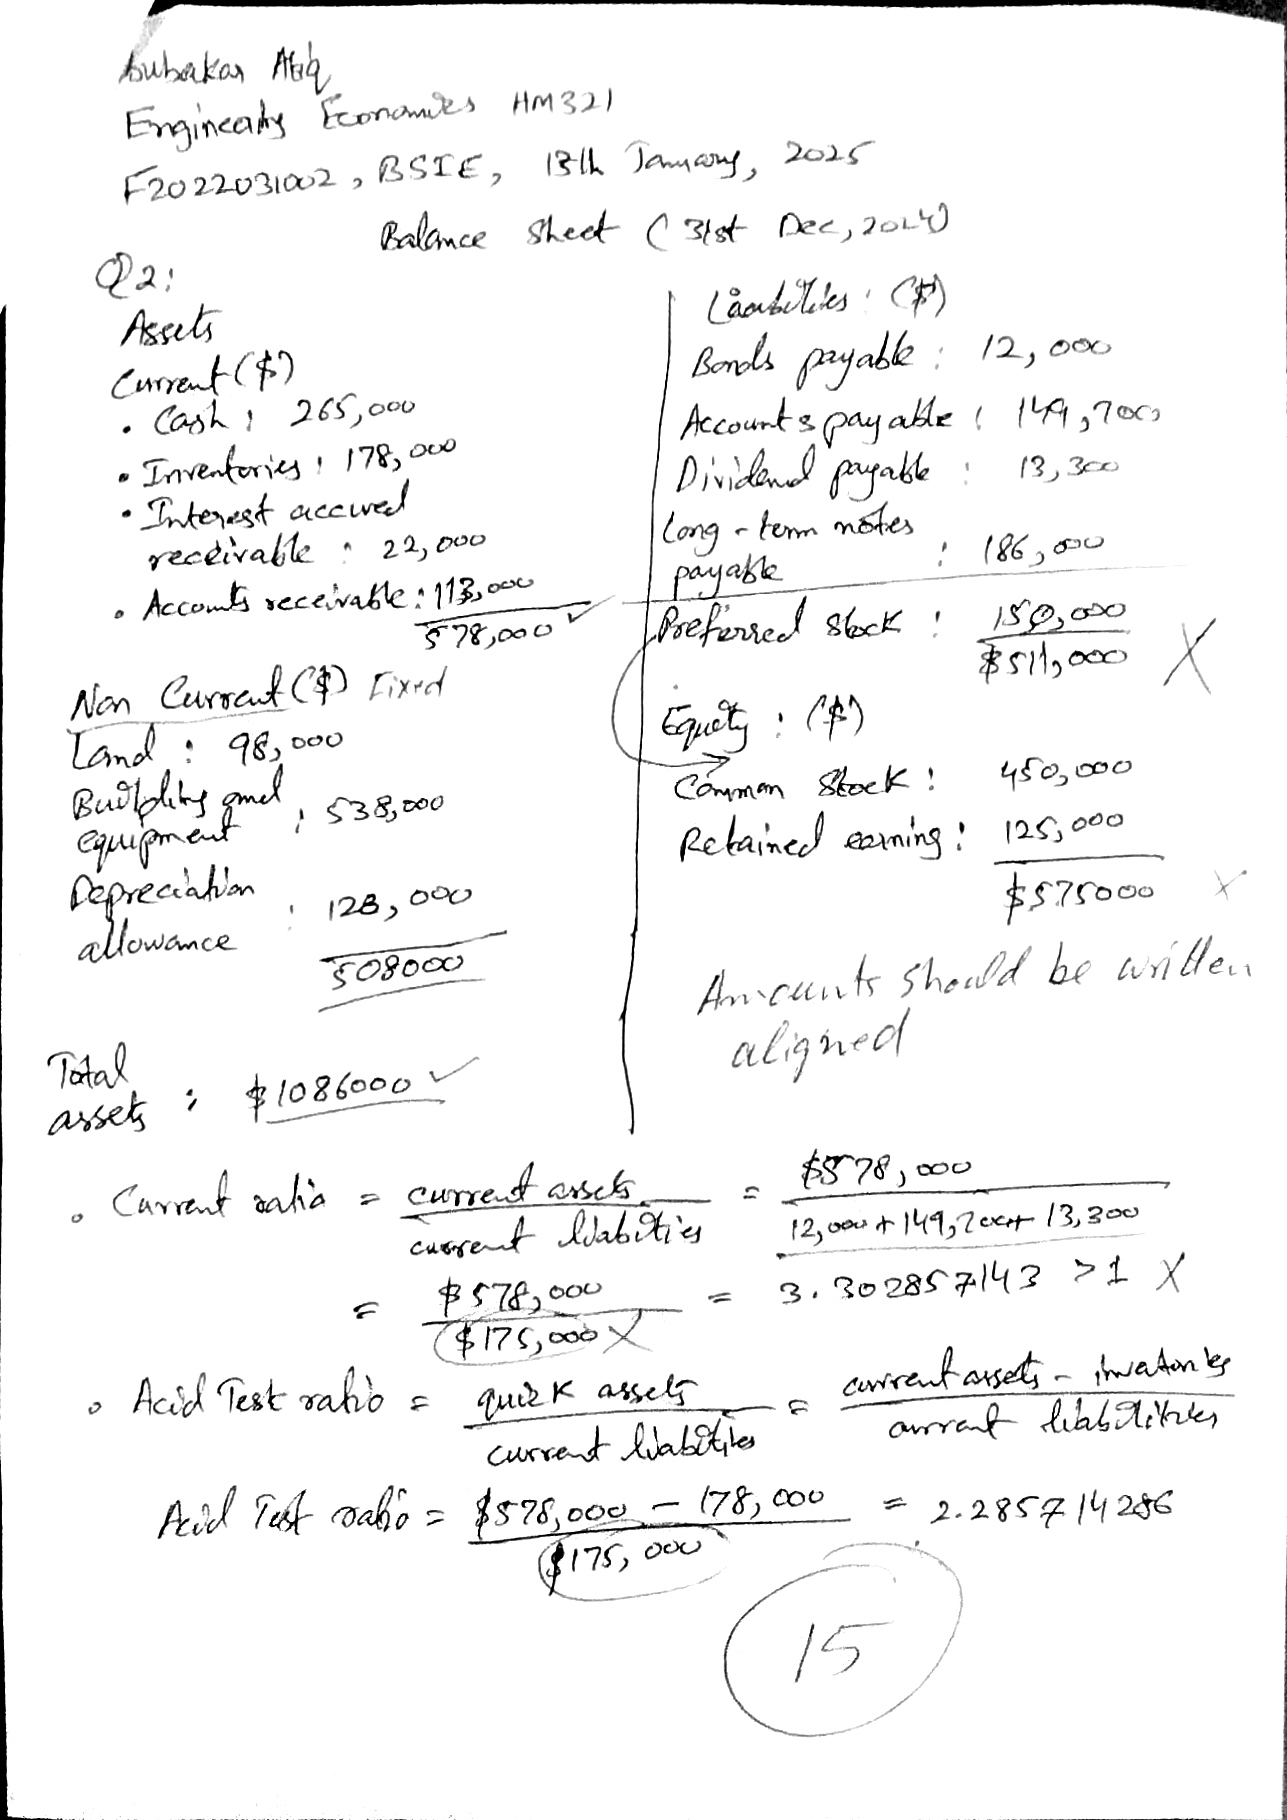 Abubakar Atiq
Engineering Economics HM321
F2022031002, BSIE, 13th January, 2025
Balance Sheet (31st Dec, 2024)
Q2:
Assets
Current ($)
• Cash : 265,000
• Inventories : 178,000
• Interest accured
receivable : 22,000
• Accounts receivable : 113,000
578,000 ✓
Non Current ($) Fixed
Land : 98,000
Building and
equipment : 538,000
Depreciation
allowance : 128,000
508000
Total
assets : $1086000 ✓
Liabilities : ($)
Bonds payable : 12,000
Accounts payable : 149,700
Dividend payable : 13,300
Long-term notes
payable : 186,000
Preferred stock : 150,000
$511,000 X
Equity : ($)
Common Stock : 450,000
Retained earning : 125,000
$575000 X
Amounts should be written
aligned
• Current ratio = current assets / current liabilities = $578,000 / 12,000 + 149,700 + 13,300
= $578,000 / $175,000 X = 3.302857143 > 1 X
• Acid Test ratio = quick assets / current liabilities = current assets - inventories / current liabilities
Acid Test ratio = $578,000 - 178,000 / $175,000 = 2.285714286
15